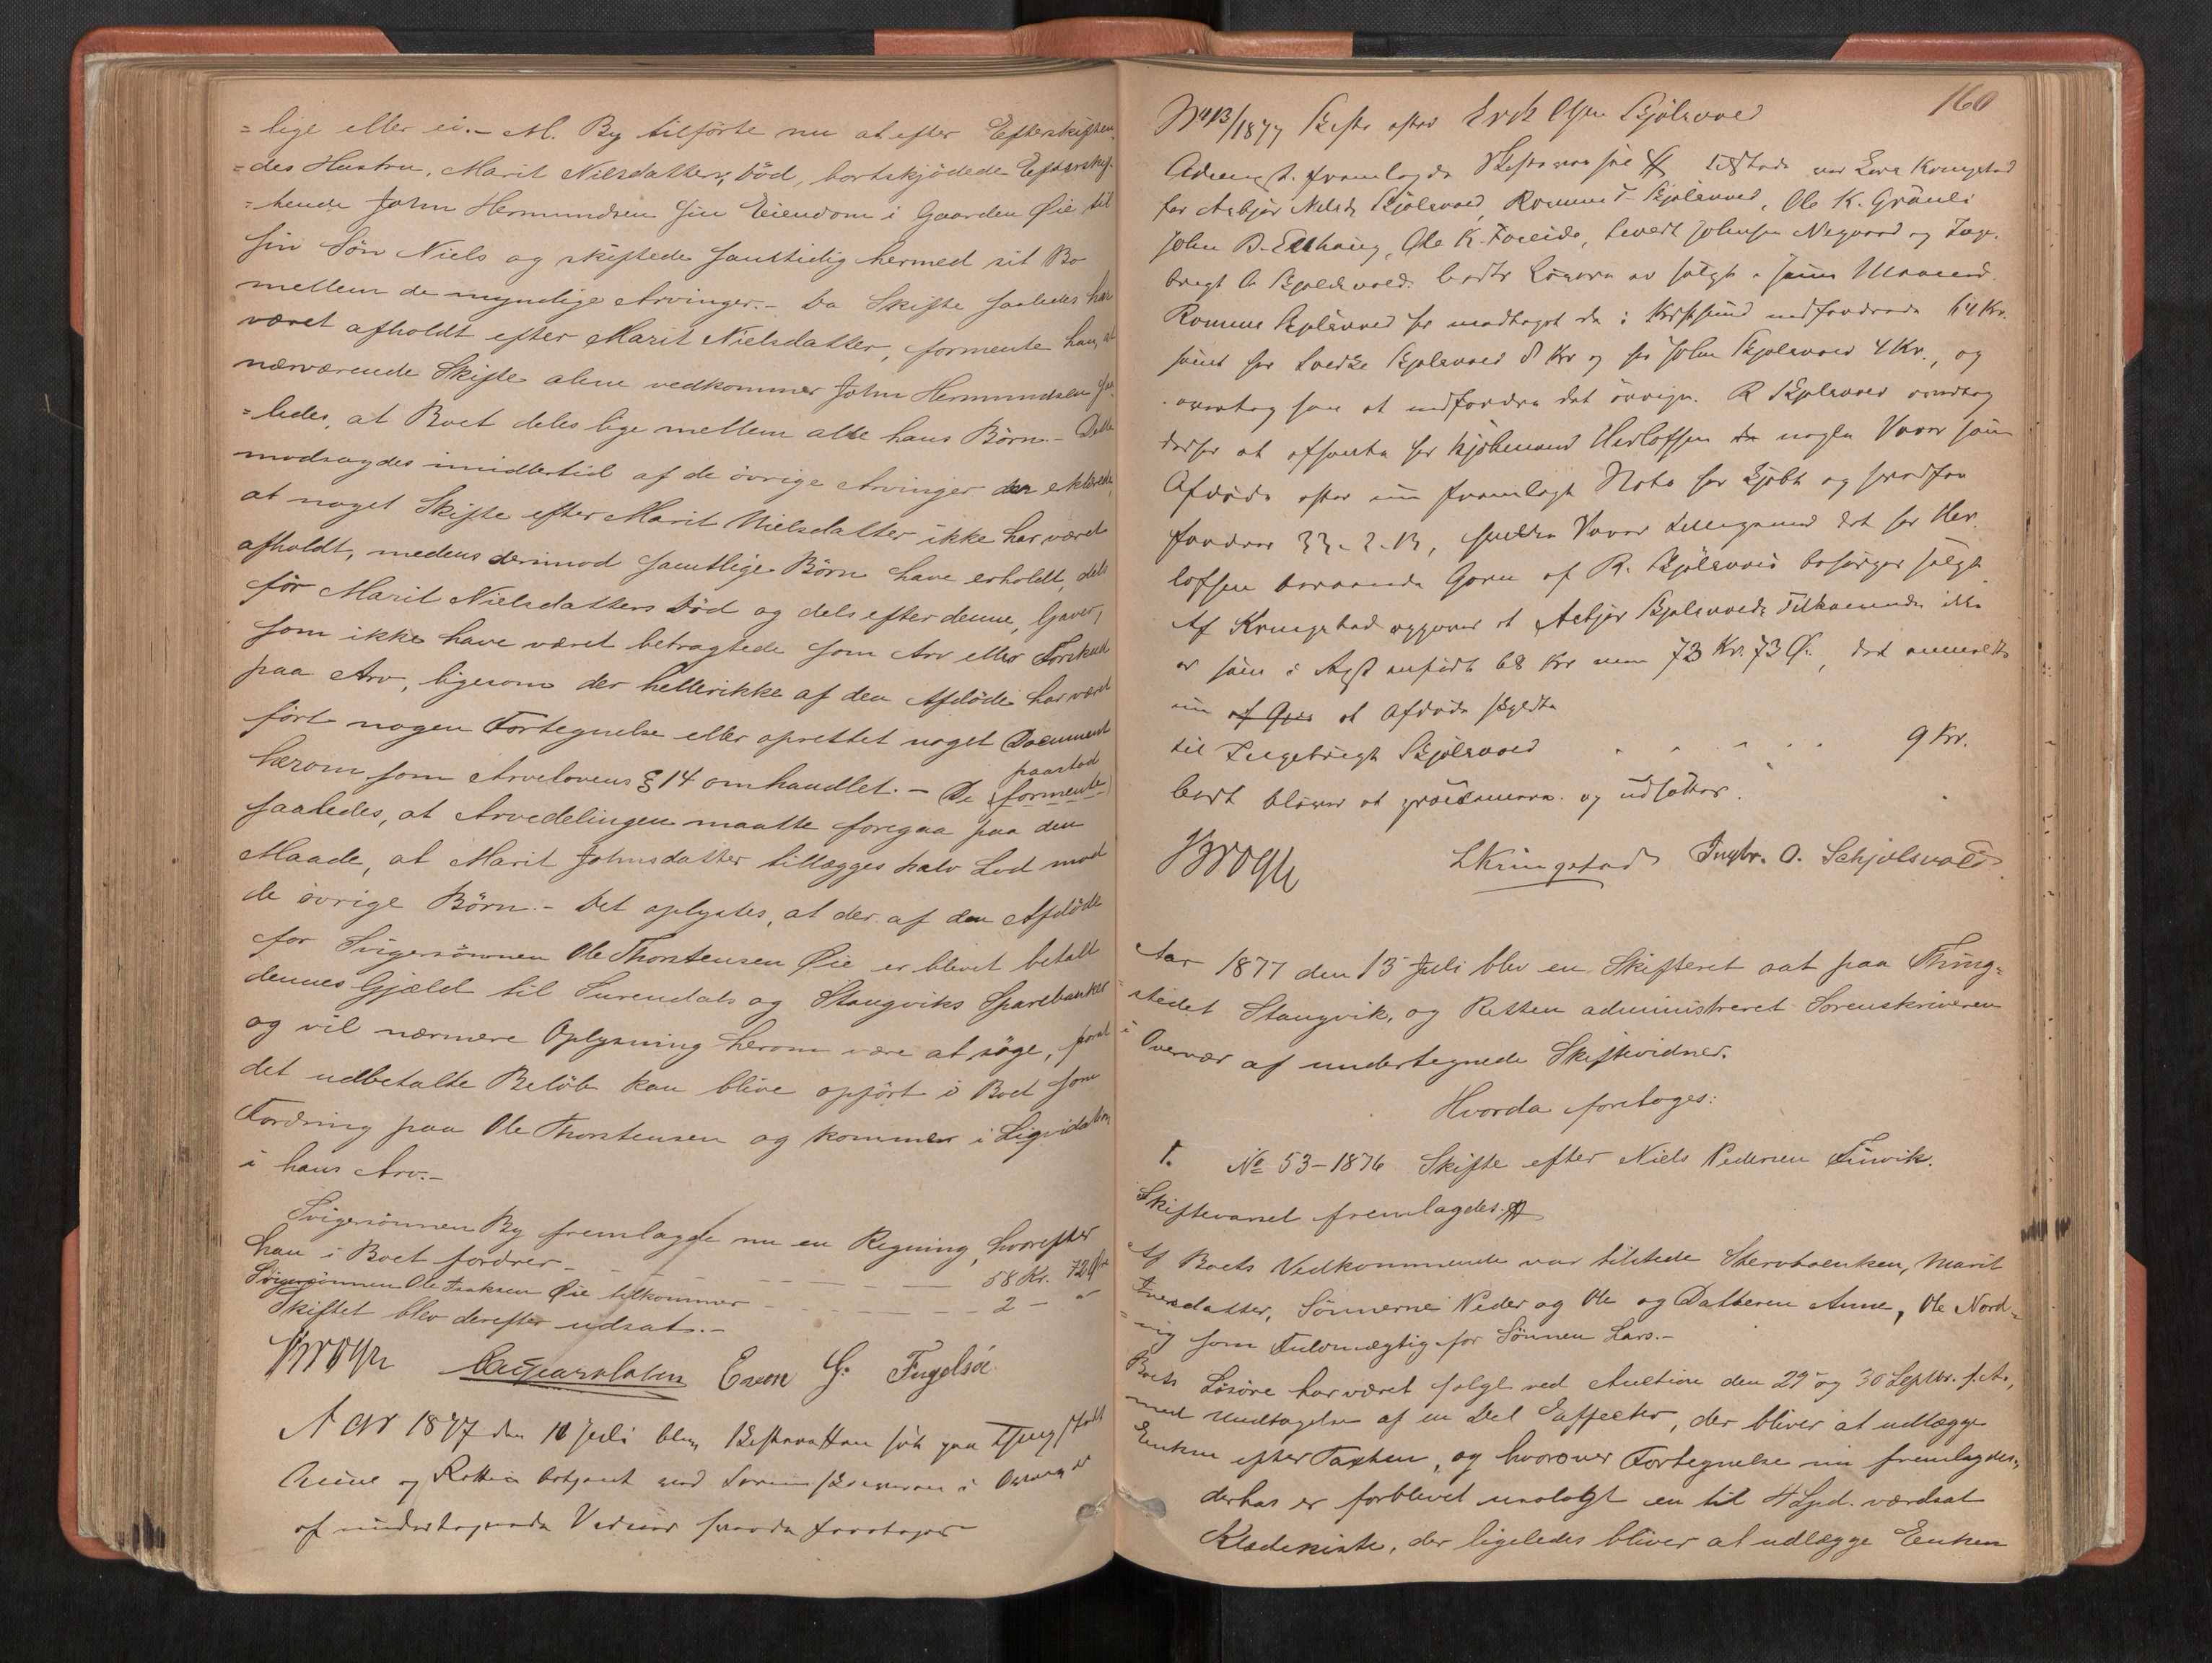 =lige eller ei.- M. By tilförte nu at efter Efterskiften-
=des Hustru, Marit Nielsdatters, Död, bortskjödede Efterskif-
=tende John Hermundsen sin Eiendom i Gaarden Øie til
sin Sön Niels og skiftede samtidig hermed sit Bo
mellem de myndige Arvinger.- Da Skifte saaledes har
været afholdt efter Marit Nielsdatter, formente han, at
nærværende Skifte alene vedkommer John Hermundsen saa-
=ledes, at Boet deles lige mellem alle hans Börn.- Dette
modsagdes imidlertid af de övrige Arvinger der erklærede,
at noget Skifte efter Marit Nielsdatter ikke har været
afholdt, medens derimod samtlige Börn have erholdt, dels
för Marit Nielsdatters Död og dels efter denne, Gaver,
som ikke have været betragtede som Arv eller Forskud
paa Arv, ligesom der hellerikke af den Afdöde har været
fört nogen Fortegnelse eller oprettet noget Document
herom som Arvelovens § 14 omhandlet.- De (formente)
paastod
saaledes, at Arvedelingen maatte foregaa paa den
Maade, at Marit Johnsdatter tillægges halv Lod mod
de övrige Börn.- Det oplystes, at der af den Afdöde
for Svigersönnen Ole Thorstensen Øie er blevet betalt
dennes Gjæld til Surendals og Stangviks Sparebanker
og vil nærmere Oplysning herom være at söge, forat
det udbetalte Belöb kan blive opfört i Boet som
Fordring paa Ole Thorstensen og kommer i Liqvidation
i hans Arv.-
Svigersönnen By fremlagde nu en Regning, hvorefter
han i Boet fordrer - - - 58 Kr. 72 Øre
Svigersönnen Ole Isaksen Øie tilkommer - - - 2 - "
Skiftet blev derefter udsat.-
Brogh Even G: Fugelsöe
Aar 1877 den 11 Juli blev Skifteretten sat paa Thingstedet
og Retten betjent ved Sorenskriveren i Overvær
af undertegnede Vidner hvorda foretoges
160
No 13/1877 Skifte efter Erik Olsen Skjölsvold
Adengst. fremlagde Skiftevarsel tilstede var Lars Kringstad
for Asbjør Nilsd. Skjölsvold, Rasmus Skjölsvold, Ole K. Grönli
John Ole K. Sivert Johnsen Negaard og Inge-
brigt O. Skjölsvold. Boets Lösöre er solgt
Rasmus Skjölsvold har modtaget de i Krstsund udfordrede 64 Kr.
samt for Skjölsvold 8 Kr og for John Skjölsvold 4 Kr., og
overtog han at indfordre det övrige. R Skjölsvold
at afsende for Kjöbmand Herlofsen nogle Varer som
Afdöde efter en fremlagt Nota har kjöbt og hvorfor
fordres 33-2-13, hvilke Varer tilligemed det for Her-
lofsen værende Garn af R. Skjölsvold besörges solgt
Af Kringstad opgaves at Asbjör Skjölsvolds Tilkommende ikke
er som i anfört 68 Kr men 73 Kr. 73 Ø., det anmeldtes
nu at Afdöde skyldte
til Ingebrigt Skjölsvold . . . . . 9 Kr.
Boet bliver at proclamere og udsættes.
Brogh LKringstad Ingbr. O. Schjölsvold
Aar 1877 den 13 Juli blev en Skifteret sat paa Thing=
=stedet Stangvik, og Retten administreret Sorenskriveren
i Overvær af undertegnede Skiftevidner.
Hvorda foretoges:
1. No 53-1876 Skifte efter Niels Pedersen Tinvik.
Skiftevarsel fremlagdes.
Af Boets Vedkommende var tilstede Stervboenken, Marit
Iversdatter, Sönnerne Peder og Ole og Datteren Anne, Ole Nord-
=vig som Fuldmægtig for Sönnen Lars.-
Boets Lösöre har været solgt ved Auction den 29 og 30 Septbr. f. A.,
med Undtagelse af en Del Effecter, der bliver at udlægge
Enken efter Taxten, og hvorover Fortegnelse nu fremlagdes,
derhos er forblevet usolgt en til 4 Spd. værdsat
Klædekiste, der ligeledes bliver at udlægge Enken